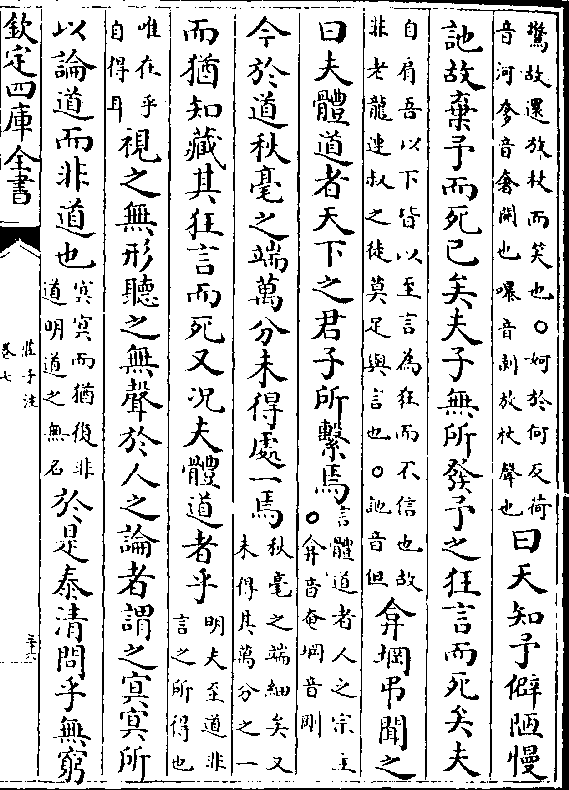 驚故還放杖而笑也○妸於何反荷
音河奓音奢開也嚗音剥放杖聲也
曰天知予僻陋慢
訑故棄予而死已矣夫子無所發予之狂言而死矣夫
自肩吾以下皆以至言為狂而不信也故
非老龍連叔之徒莫足與言也○訑音但
弇堈弔聞之
曰夫體道者天下之君子所繫焉
言體道者人之宗主
○弇音奄堈音剛
今於道秋毫之端萬分未得處一焉
秋毫之端細矣又
未得其萬分之一
而猶知藏其狂言而死又况夫體道者乎
明夫至道非
言之所得也
唯在乎
自得耳
視之無形聽之無聲於人之論者謂之冥冥所
以論道而非道也
冥冥而猶復非
道明道之無名
於是泰清問乎無窮
欽定四庫全書
莊子注
卷七